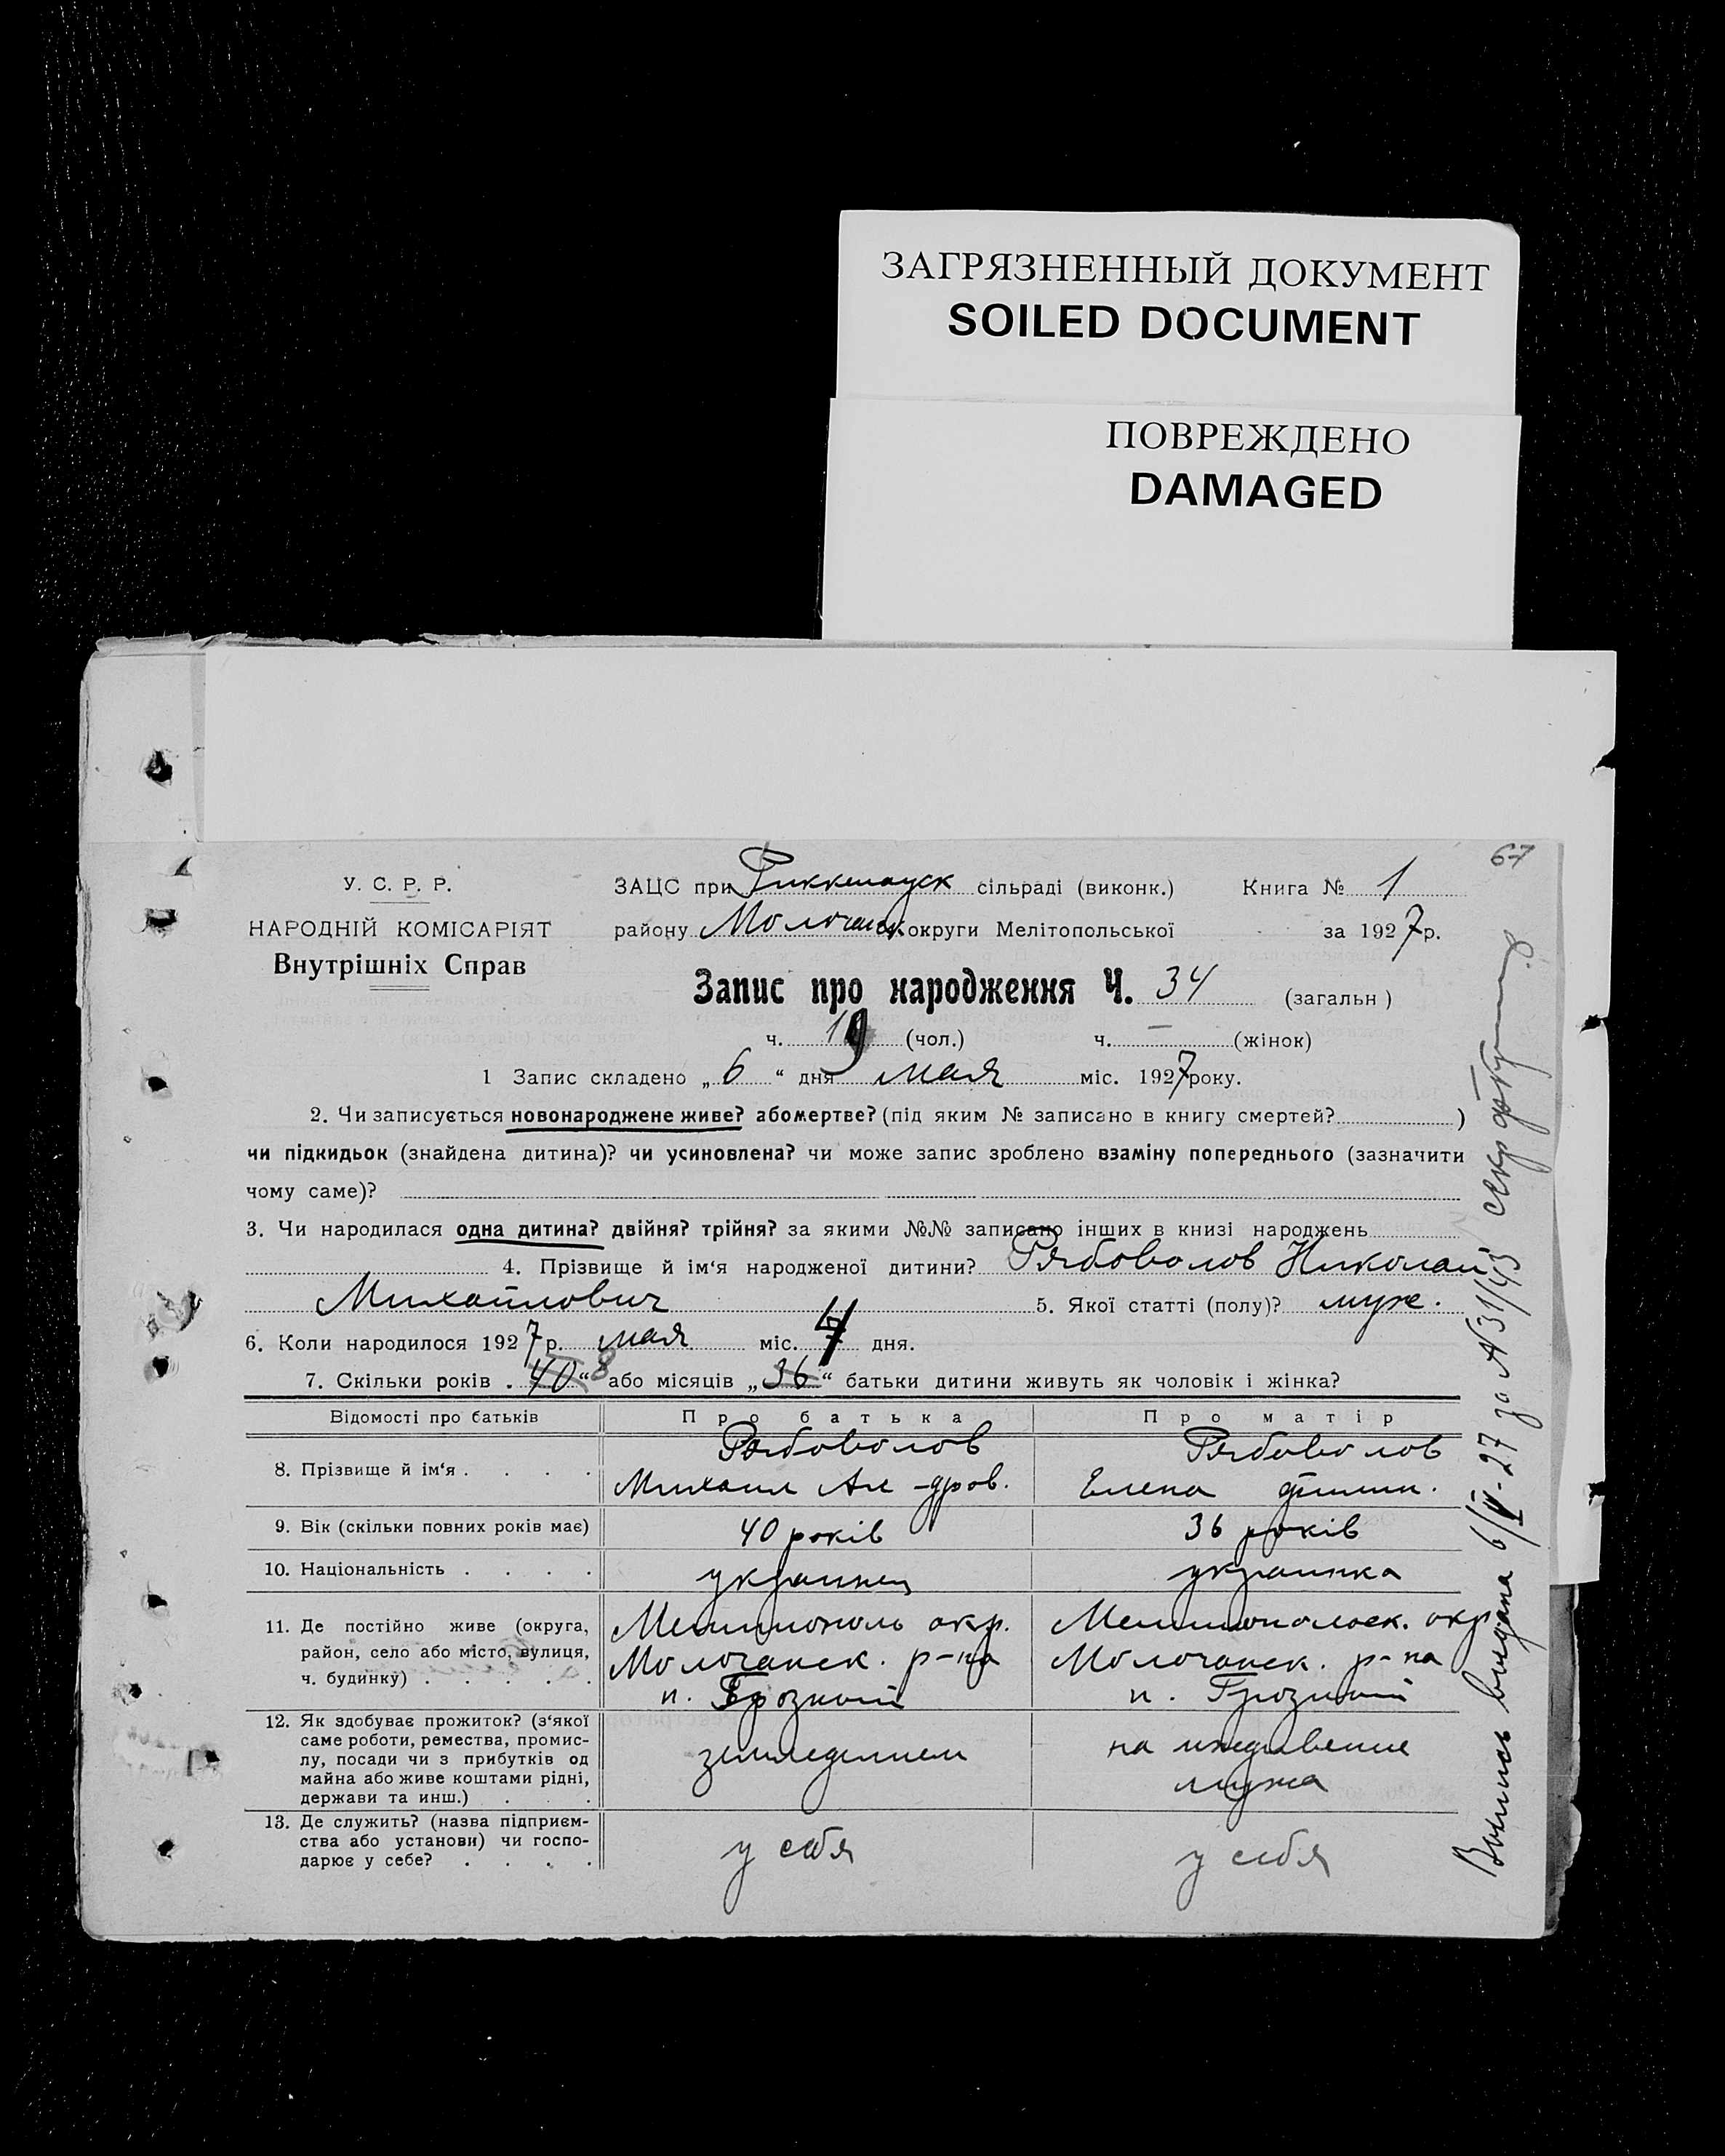 ЗАГРЯЗНЕННЫЙ ДОКУМЕНТ
SOILED DOCUMENT
ПОВРЕЖДЕНО
DAMAGED
67
У. С. Р. Р.
НАРОДНІЙ КОМІСАРІЯТ
Внутрішніх Справ
ЗАЦС при Риккенауск сільраді (виконк.) Книга № 1
району Молочанск. округи Мелітопольської за 1927 р.
Запис про народження Ч. 34 (загальн)
ч. 19 (чол.) ч. — (жінок)
1 Запис складено „ 6 “ дня мая міс. 1927 року.
2. Чи записується новонароджене живе? або мертве? (під яким № записано в книгу смертей? )
чи підкидьок (знайдена дитина)? чи усиновлена? чи може запис зроблено взаміну попереднього (зазначити
чому саме)?
3. Чи народилася одна дитина? двійня? трійня? за якими №№ записано інших в книзі народжень
4. Прізвище й ім‘я народженої дитини? Рябоволов Николай
Михайлович 5. Якої статті (полу)? муж.
6. Коли народилося 1927 р. мая міс. 4 дня.
7. Скільки років . 40 “ 8 або місяців „ 36 “ батьки дитини живуть як чоловік і жінка?
Відомості про батьків Про батька Про матір
8. Прізвище й ім‘я . . . . Рябоволов Михаил Ал-дров. Рябоволов Елена
9. Вік (скільки повних років має) 40 років 36 років
10. Національність . . . . украинец украинка
11. Де постійно живе (округа, Мелитополь окр. Мелитопольск. окр.
район, село або місто, вулиця, Молочанск. р-на Молочанск. р-на
ч. будинку) . . . . . п. Грозный п. Грозный
12. Як здобуває прожиток? (з‘якої
саме роботи, ремества, промис-
лу, посади чи з прибутків од земледелием на иждивение
майна або живе коштами рідні, мужа
держави та инш.) . . .
13. Де служить? (назва підприєм-
ства або установи) чи госпо- у себя у себя
дарює у себе? . . . .
Выпись выдана 6/V-27 за N 31/43 секр